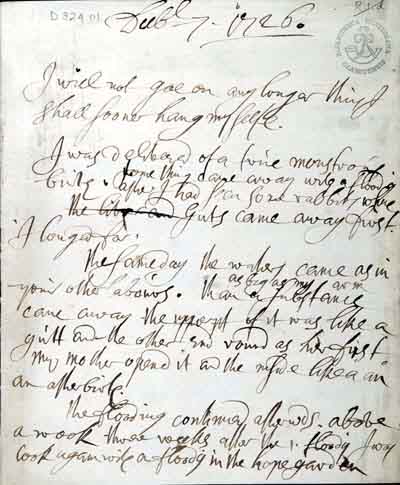 D324 01
R.1.d.
Decb. 7. 1726.
I will not goe on any longer thus I
shall sooner hang my selfe.
I was delivered of a true monstrous
birth. some thing came away with a floody
after I had seen some rabbits were
the guts came away first
I longed for.
the same day the waters came as in
your other labours.
as big as my arm
then a substance
came away the uperpt of it was like a
gutt and the other end round as her fist
My mother opend it and the inside like a
an afterbirth.
the flooding continued afterwds. above
a week three weeks after the 1. floody I was
took again with a floody in the hope garden